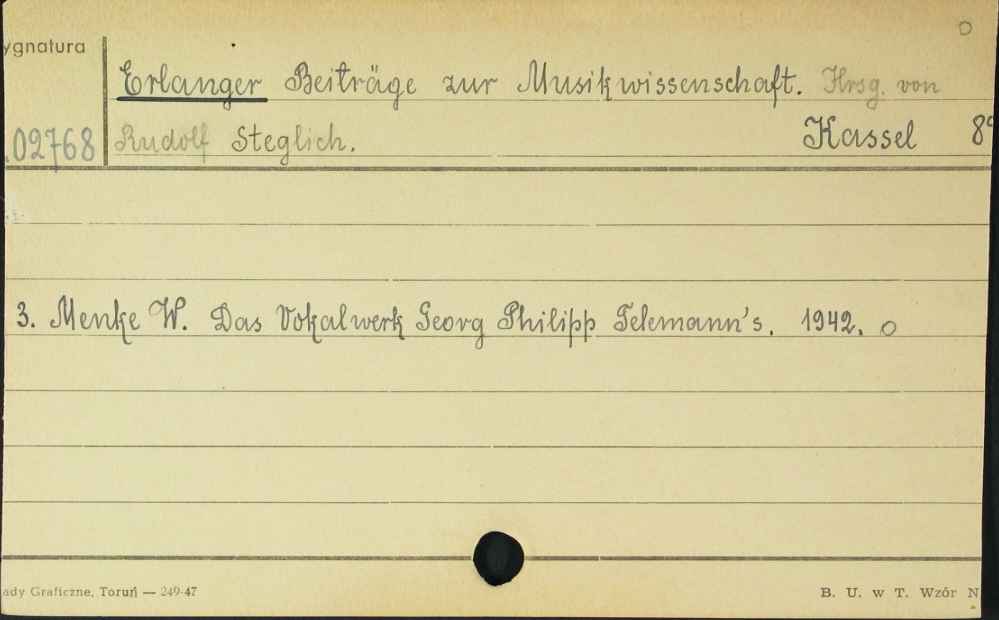 ygnatura
Erlanger Beiträge zur Musikwissenschaft. Hrsg. von
.02768 Rudolf Steglich. Kassel 8°
3. Menke W. Das Vokalwerk Georg Philipp Telemann's. 1942. o
ady Graficzne, Toruń — 249-47 B. U. w T. Wzór N